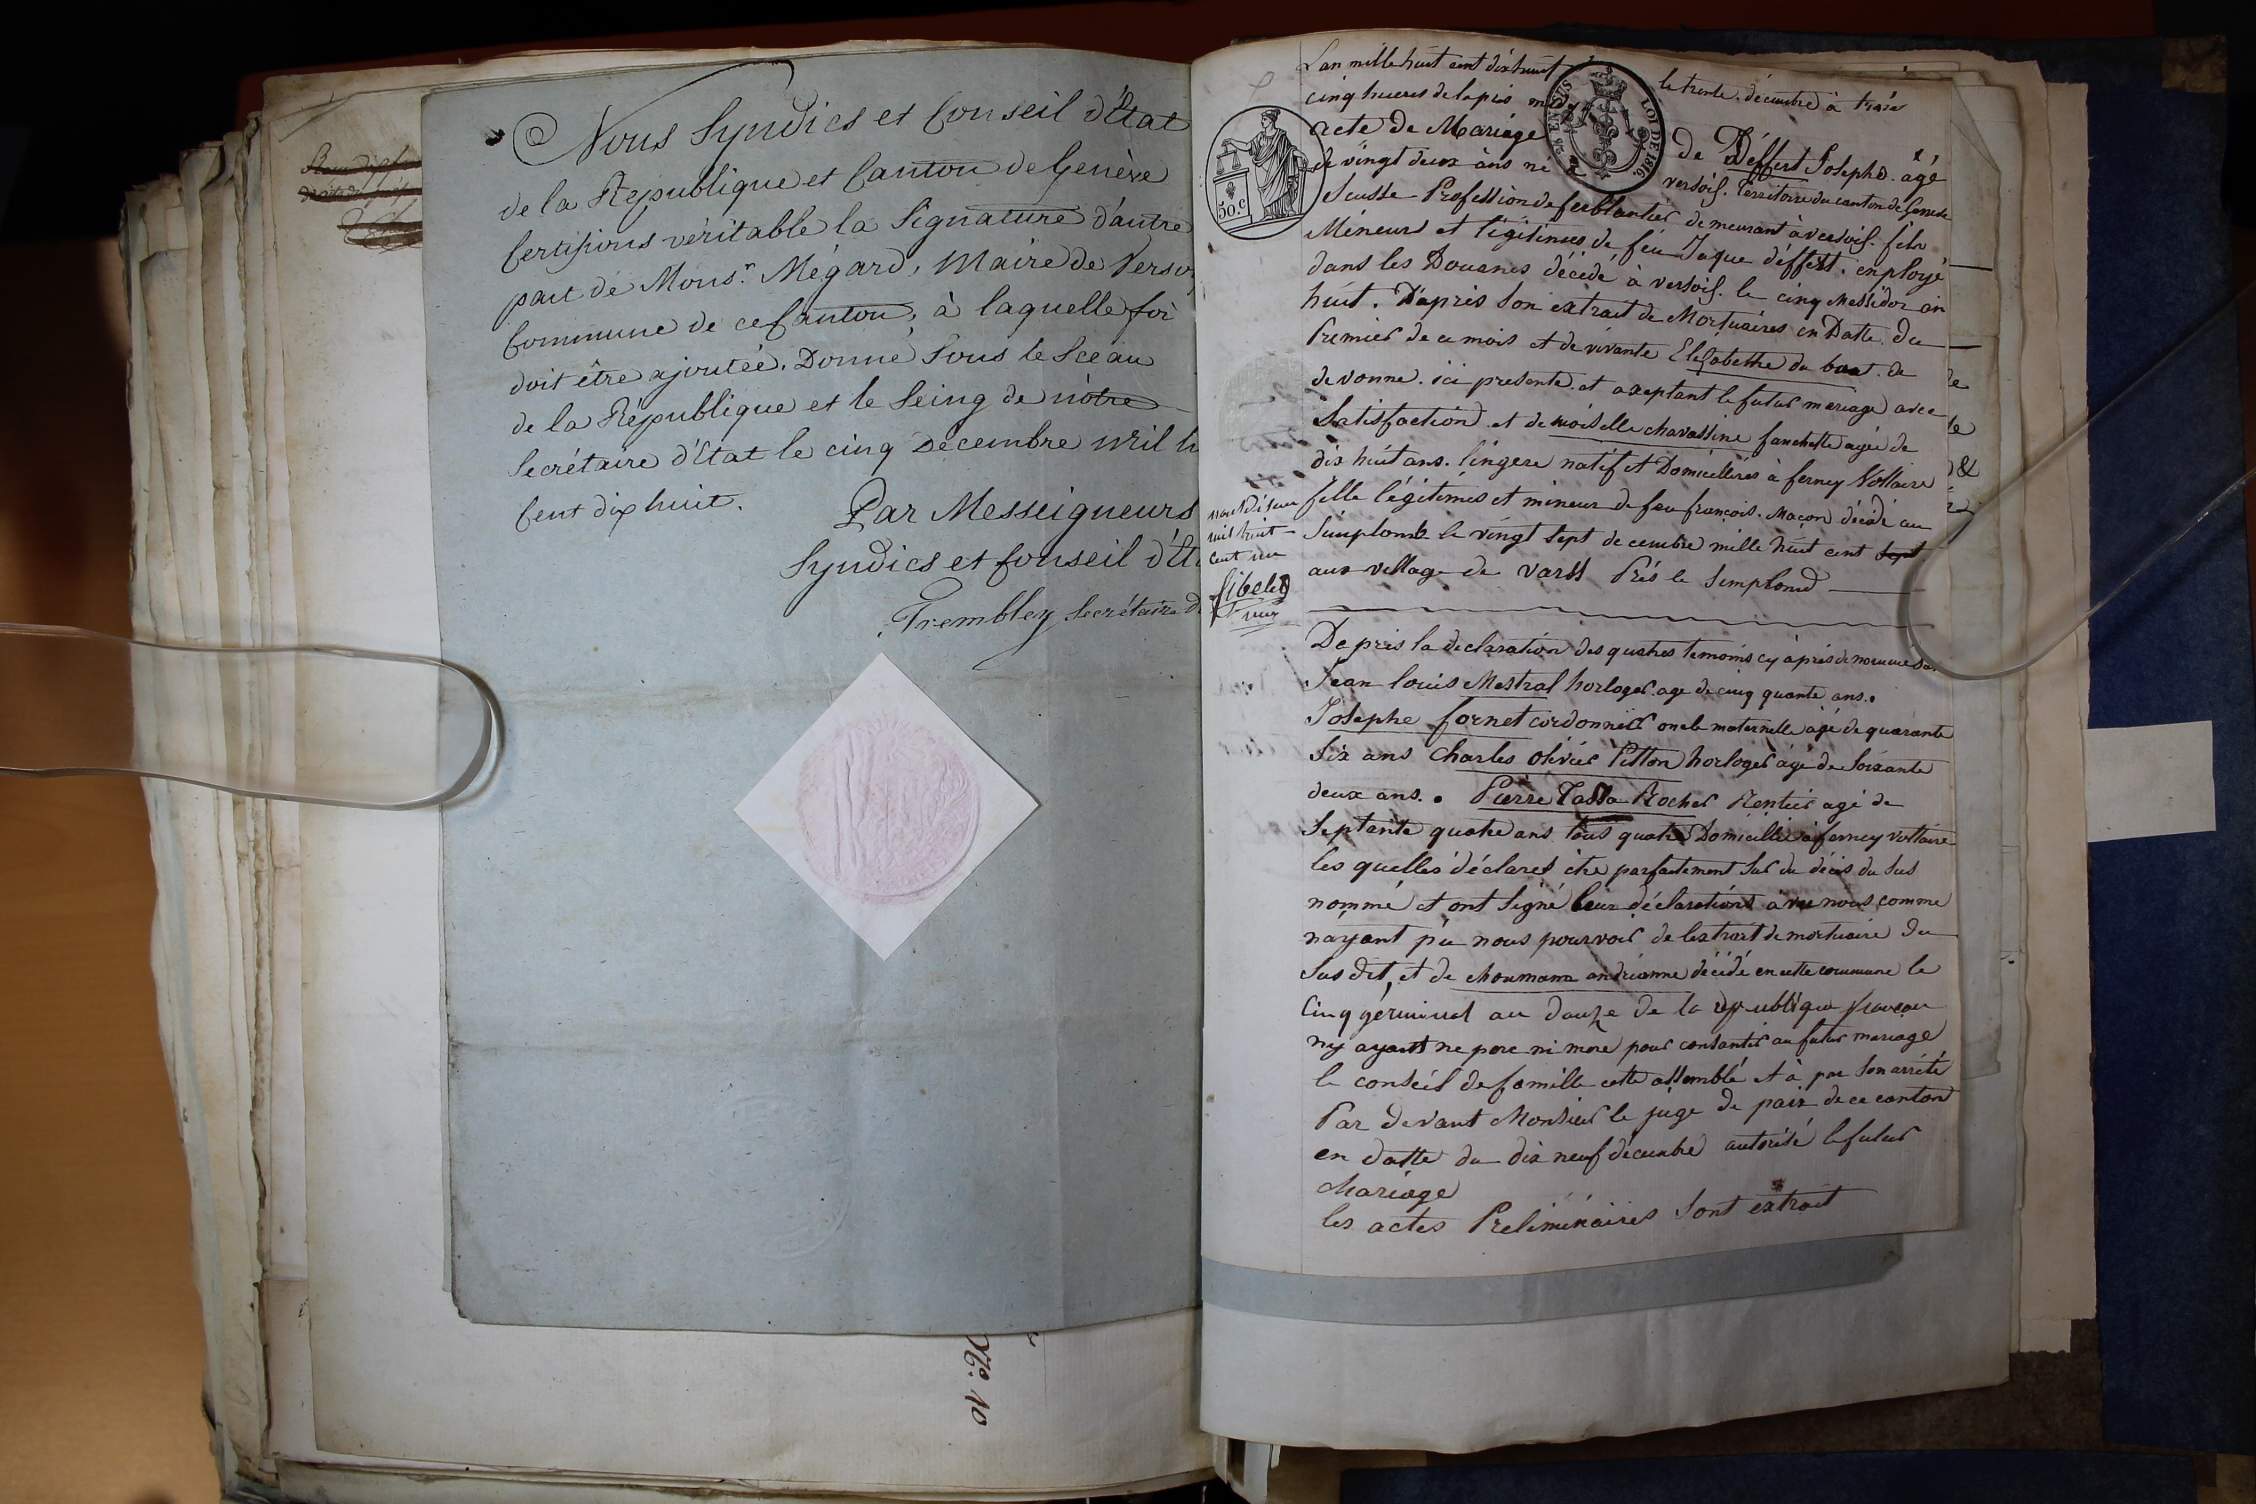 Nous Syndics et Conseil d'État
de la République et Canton de Genève
Certifions véritable la Signature d'autre
part de Mons.r Mégard, Maire de Verso
Commune de ce Canton, à laquelle foi
doit être ajoutée. Donné sous le Sceau
de la République et le Seing de nôtre
Secrétaire d'État le cinq Décembre Mil h
Cent dix huit.
Par Messeigneurs
Syndics et Conseil d'Ét
Trembley Secrétaire d
No. 10
Lan mille huit cent dix huit le trente décembre à
cinq heures de la
acte de Mariage de Déffert Josephe âgé
de vingt deux àns né à versoif. Territoire du canton de Geneve
Scusse Profession de ferblantier demeurant à versoif. fils
Méneurs et légitimes de féu Jaque déffert. employé
dans les Douanes décédé à versoif. le cinq Messidor an
huit. D'apprès son extrait de Mortuaires en Datte du
Premier de ce mois et de vivante Elesabethe du de
devonne. ici presente et axeptant le futur mariage avec
Satisfaction et demoiselle chavassine fanchette agée de
dix huit ans. lingere natif et Domiciliés à ferney Voltaire
fille légitimes et mineur de feu françois. Maçon décédé au
Simplomb le vingt sept decembre mille huit cent sept
aux village de Varss Prés le Simplond
mil huit
cent un
De près la declaration des quatres temoins cy àprés denommé
Jean louis Mestral horloger age de cinq quante ans.
Josephe fornet cordonnier oncle maternelle agé de quarante
six ans Charles olivier Pitton horloger agé de soixante
deux ans. Pierre Rocher Rentier agé de
Septante quatre ans tous quatre Domicillié à ferney voltaire
les quelles déclares être parfaitement sur du décés du sus
nommé et ont signé leur déclarations à nous comme
nayant pu nous pourvoir de lextrait de mortuaire du
sus dit, et de choumann andrianne décédé en cette commune le
Cinq germinal an douze de la republique
ny ayant ne pere ni mere pour consantir au futur mariage
le conseil de famille cette assemblé et à par son arrété
Par devant Monsieur le juge de paix de ce canton
en datte du dix neuf décembre autorisé le futur
Mariage
les actes Preliminaires sont extrait
50.c
LOI DE 1816.
EN SUS